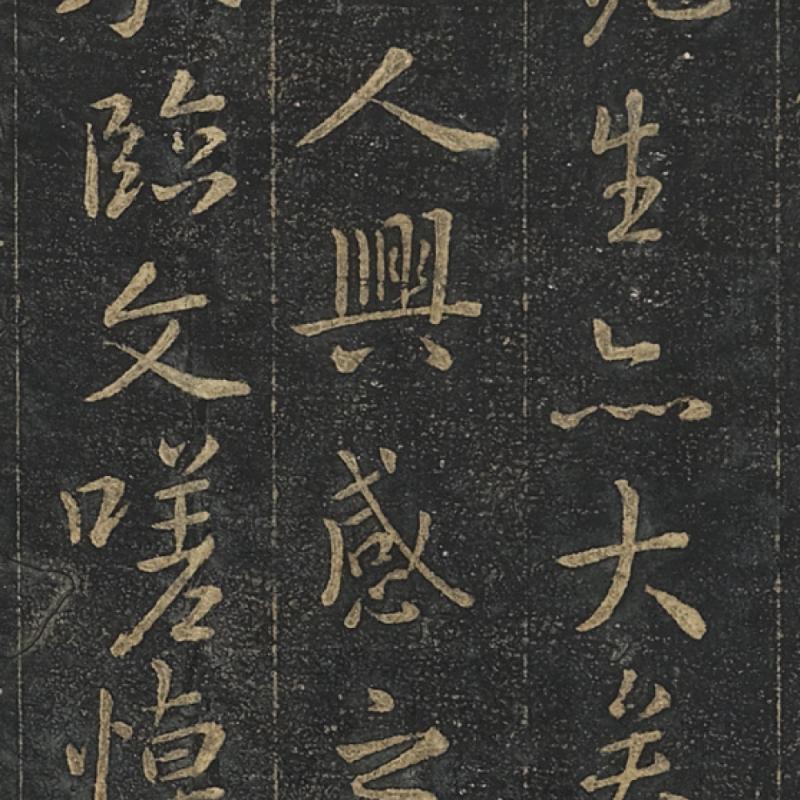 生亦大矣
人興感之
臨文嗟悼